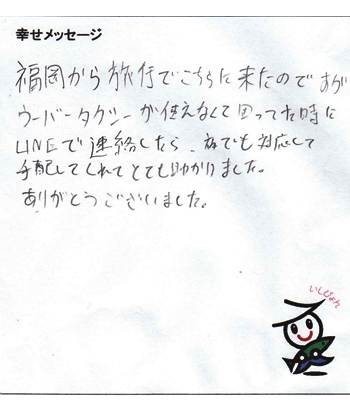 幸せメッセージ
福岡から旅行でこちらに来たのですが
ウーバータクシーが使えなくて困ってた時に
LINEで連絡したら、夜でも対応して
手配してくれてとても助かりました。
ありがとうございました。
いしぴょん